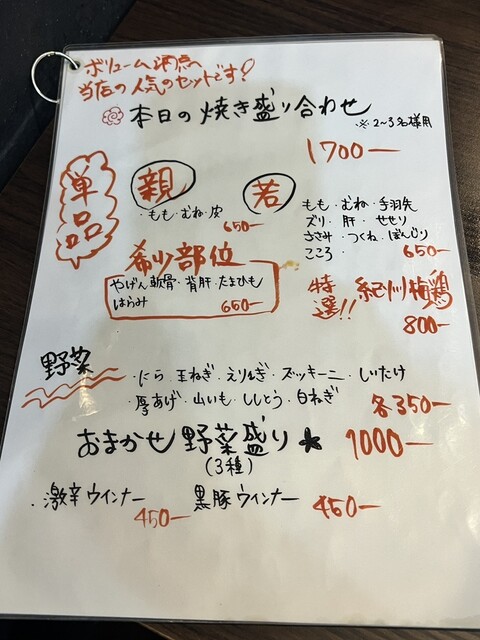 ボリューム満点
当店の人気のセットです!
本日の焼き盛り合わせ
※2~3名様用
1700ー
単品
親
・もも・むね・皮
650ー
若
もも・むね・手羽先
ズリ・肝・せせり
ささみ・つくね・ぼんじり
こころ・
650ー
希少部位
やげん軟骨・背肝・たまひも
はらみ
650ー
特選!! 紀州梅鶏
800ー
野菜
・にら・玉ねぎ・えりんぎ・ズッキーニ・しいたけ
・厚あげ・山いも・ししとう・白ねぎ
各350ー
おまかせ野菜盛り★ 1000ー
(3種)
・激辛ウインナー
450ー
黒豚ウインナー 450ー